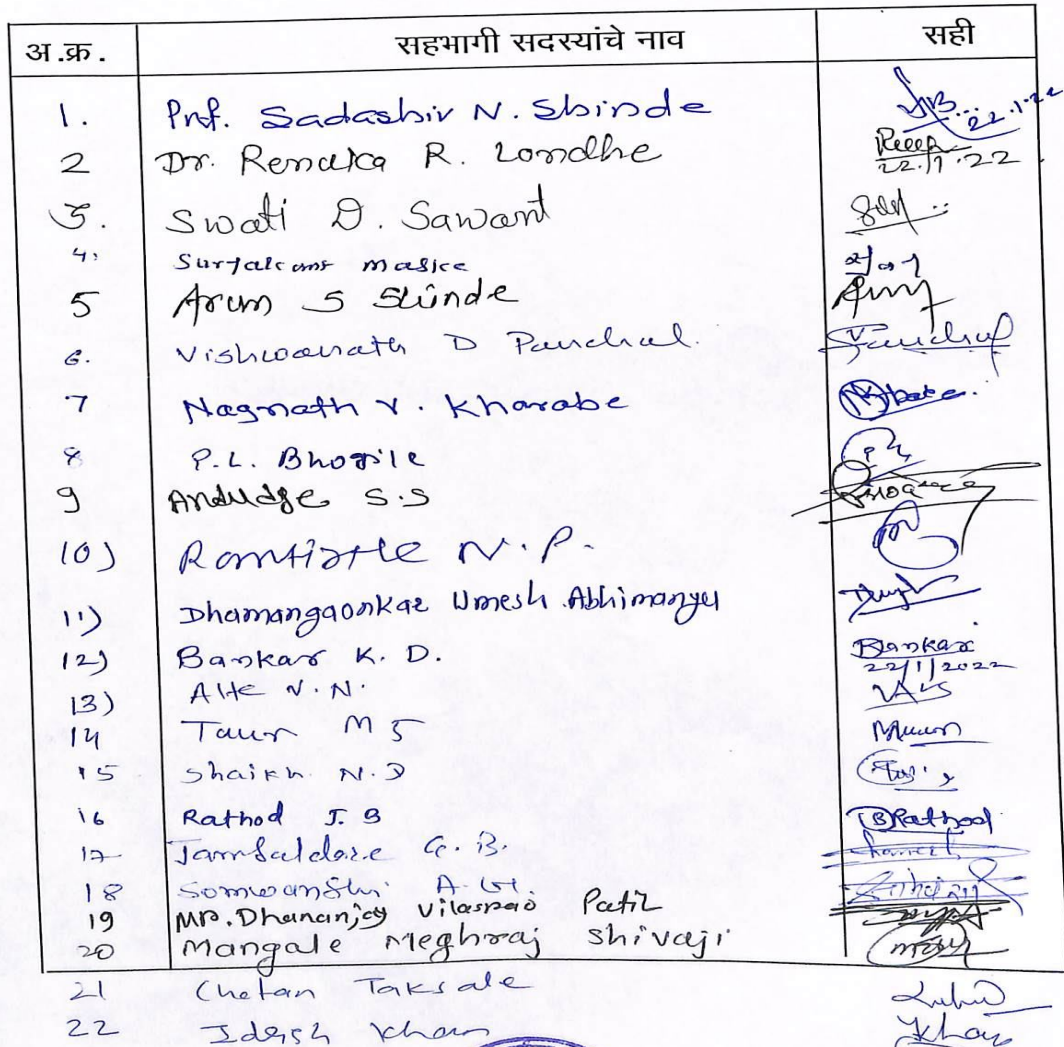 अ.क्र. सहभागी सदस्यांचे नाव सही
1. Prof. Sadashiv N. Shinde 22.1.22
2 Dr. Renuka R. Londhe 22.1.22
3. Swati D. Sawant
4. Suryakant Maske
5 Arun S Shinde
6. Vishwanath D Panchal. Panchal
7 Nagnath V. Kharabe
8 P.L. Bhogile
9 Andudge S.S
10) Ramtirthe N.P.
11) Dhamangaonkar Umesh Abhimanyu
12) Bankar K. D. Bankar 22/1/2022
13) Alte V.N.
14 Taur M S
15 Shaikh N.D
16 Rathod J.B JBRathod
17 Jambaldare G.B.
18 Somwanshi A.G.
19 MR. Dhananjay Vilasrao Patil
20 Mangale Meghraj Shivaji
21 Chetan Taksale
22 Idrish Khan Khan